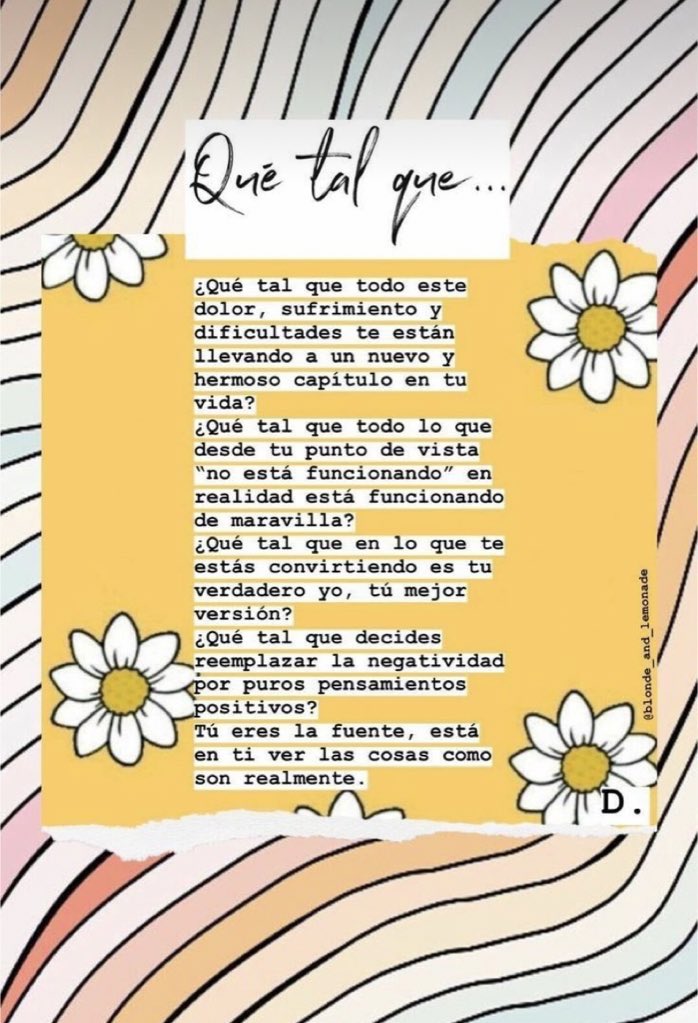 Qué tal que...
¿Qué tal que todo este
dolor, sufrimiento y
dificultades te están
llevando a un nuevo y
hermoso capítulo en tu
vida?
¿Qué tal que todo lo que
desde tu punto de vista
“no está funcionando” en
realidad está funcionando
de maravilla?
¿Qué tal que en lo que te
estás convirtiendo es tu
verdadero yo, tú mejor
versión?
¿Qué tal que decides
reemplazar la negatividad
por puros pensamientos
positivos?
Tú eres la fuente, está
en ti ver las cosas como
son realmente.
@blonde_and_lemonade
D.